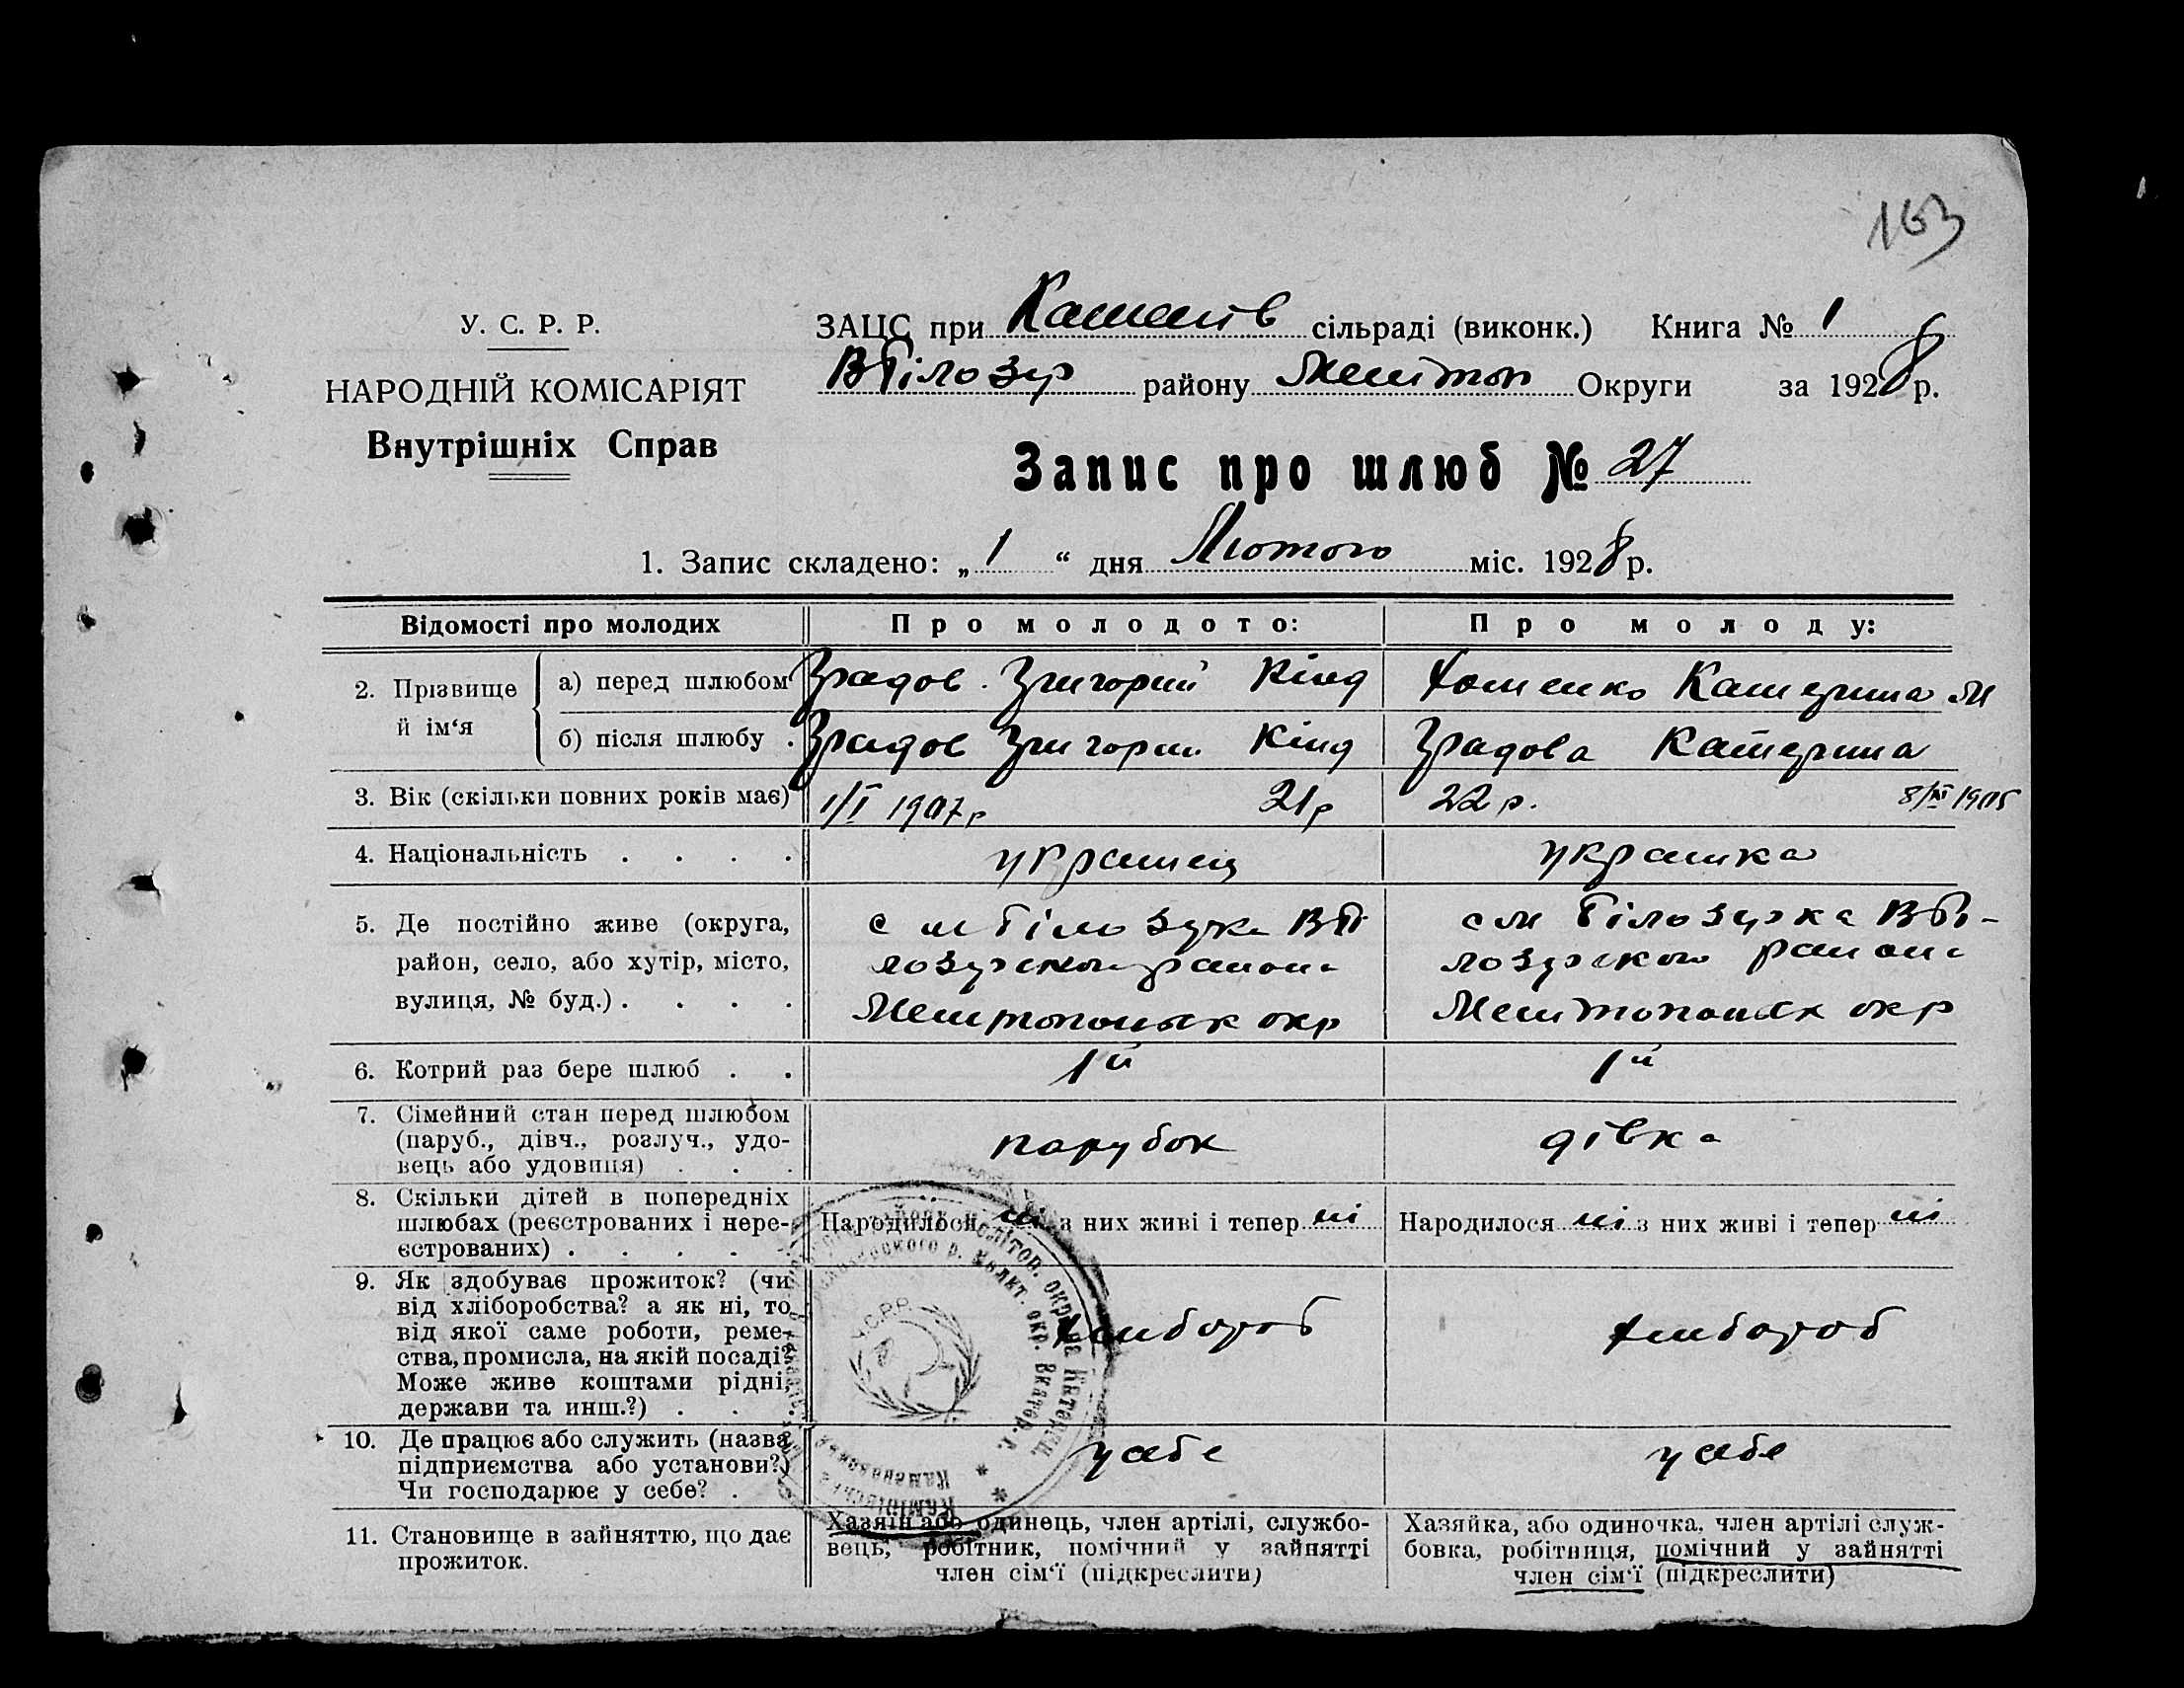 163
У. С. Р. Р.
НАРОДНІЙ КОМІСАРІЯТ
Внутрішніх Справ
ЗАЦС при Каменів сільраді (виконк.) Книга № 1
ВБілозер району Мелітоп Округи за 1928 р.
Запис про шлюб № 27
1. Запис складено: „ 1 “ дня Лютого міс. 1928 р.
Відомості про молодих
Про молодого:
Про молоду:
2. Прізвище й ім‘я
а) перед шлюбом
Градов Григорий Кінд
Хоменко Катерина М
б) після шлюбу .
Градов Григорий Кінд
Градова Катерина
3. Вік (скільки повних років має)
1/I 1907р 21р
22 р. 8/XI 1905
4. Національність . . . .
украинец
украинка
5. Де постійно живе (округа,
район, село, або хутір, місто,
вулиця, № буд.) . . . .
с м Білозерка ВБі
лозерского района
Мелитопольск окр
с м Білозерка ВБі-
лозерского района
Мелитопольск окр
6. Котрий раз бере шлюб . .
1й
1й
7. Сімейний стан перед шлюбом
(паруб., дівч., розлуч., удо-
вець або удовиця) . . .
парубок
дівка
8. Скільки дітей в попередніх
шлюбах (реєстрованих і нере-
єстрованих) . . . .
Народилося ні з них живі і тепер ні
Народилося ні з них живі і тепер ні
9. Як здобуває прожиток? (чи
від хліборобства? а як ні, то
від якої саме роботи, реме-
ства, промисла, на якій посаді?
Може живе коштами рідні,
держави та инш.?) . . .
хлибороб
хлибороб
10. Де працює або служить (назва
підприємства або установи?)
Чи господарює у себе? .
у себе
у себе
11. Становище в зайняттю, що дає
прожиток.
Хазяїн або одинець, член артілі, службо-
вець, робітник, помічний у зайнятті
член сім‘ї (підкреслити)
Хазяйка, або одиночка, член артілі служ-
бовка, робітниця, помічний у зайнятті
член сім‘ї (підкреслити)
У.С.Р.Р.